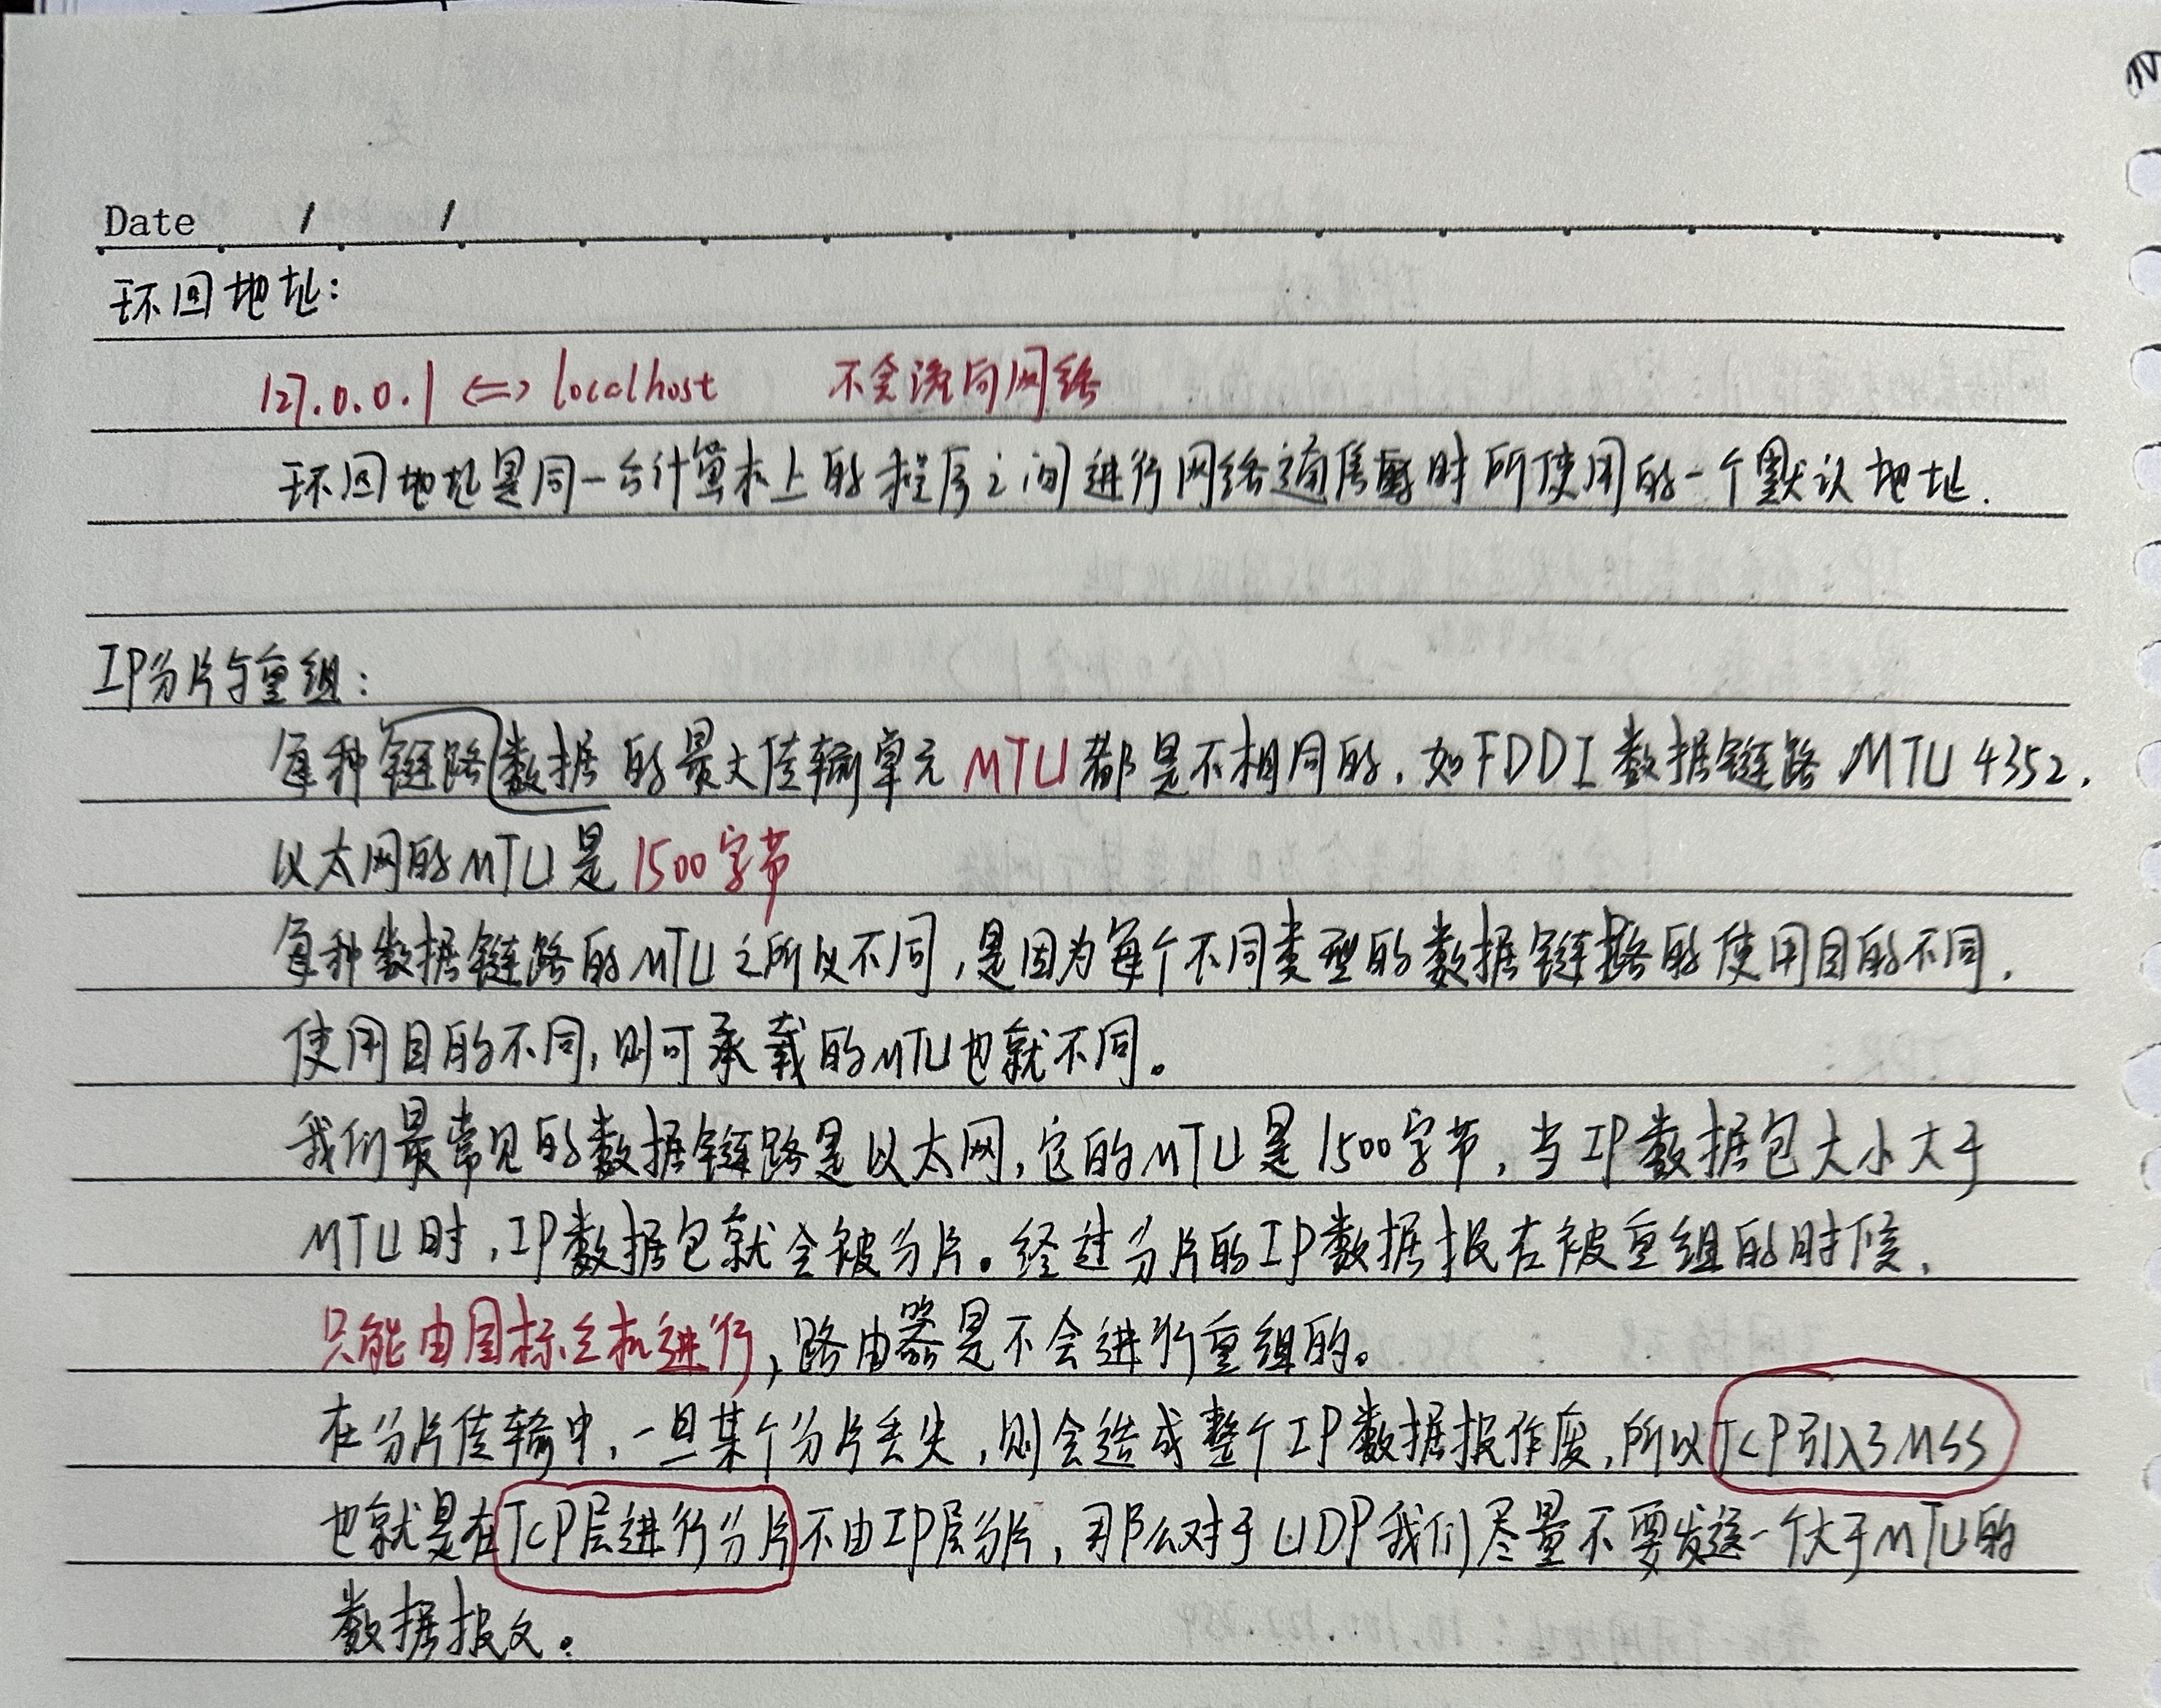 Date / /
环回地址:
127.0.0.1 <=> localhost 不会流向网络
环回地址是同一台计算机上的程序之间进行网络通信时所使用的一个默认地址.
IP分片与重组:
每种链路数据的最大传输单元MTU都是不相同的,如FDDI数据链路MTU 4352,
以太网的MTU是1500字节
每种数据链路的MTU之所以不同,是因为每个不同类型的数据链路的使用目的不同,
使用目的不同,则可承载的MTU也就不同。
我们最常见的数据链路是以太网,它的MTU是1500字节,当IP数据包大小大于
MTU时,IP数据包就会被分片。经过分片的IP数据报在被重组的时候,
只能由目标主机进行,路由器是不会进行重组的。
在分片传输中,一旦某个分片丢失,则会造成整个IP数据报作废,所以TCP引入了MSS
也就是在TCP层进行分片不由IP层分片,那么对于UDP我们尽量不要发送一个大于MTU的
数据报文。